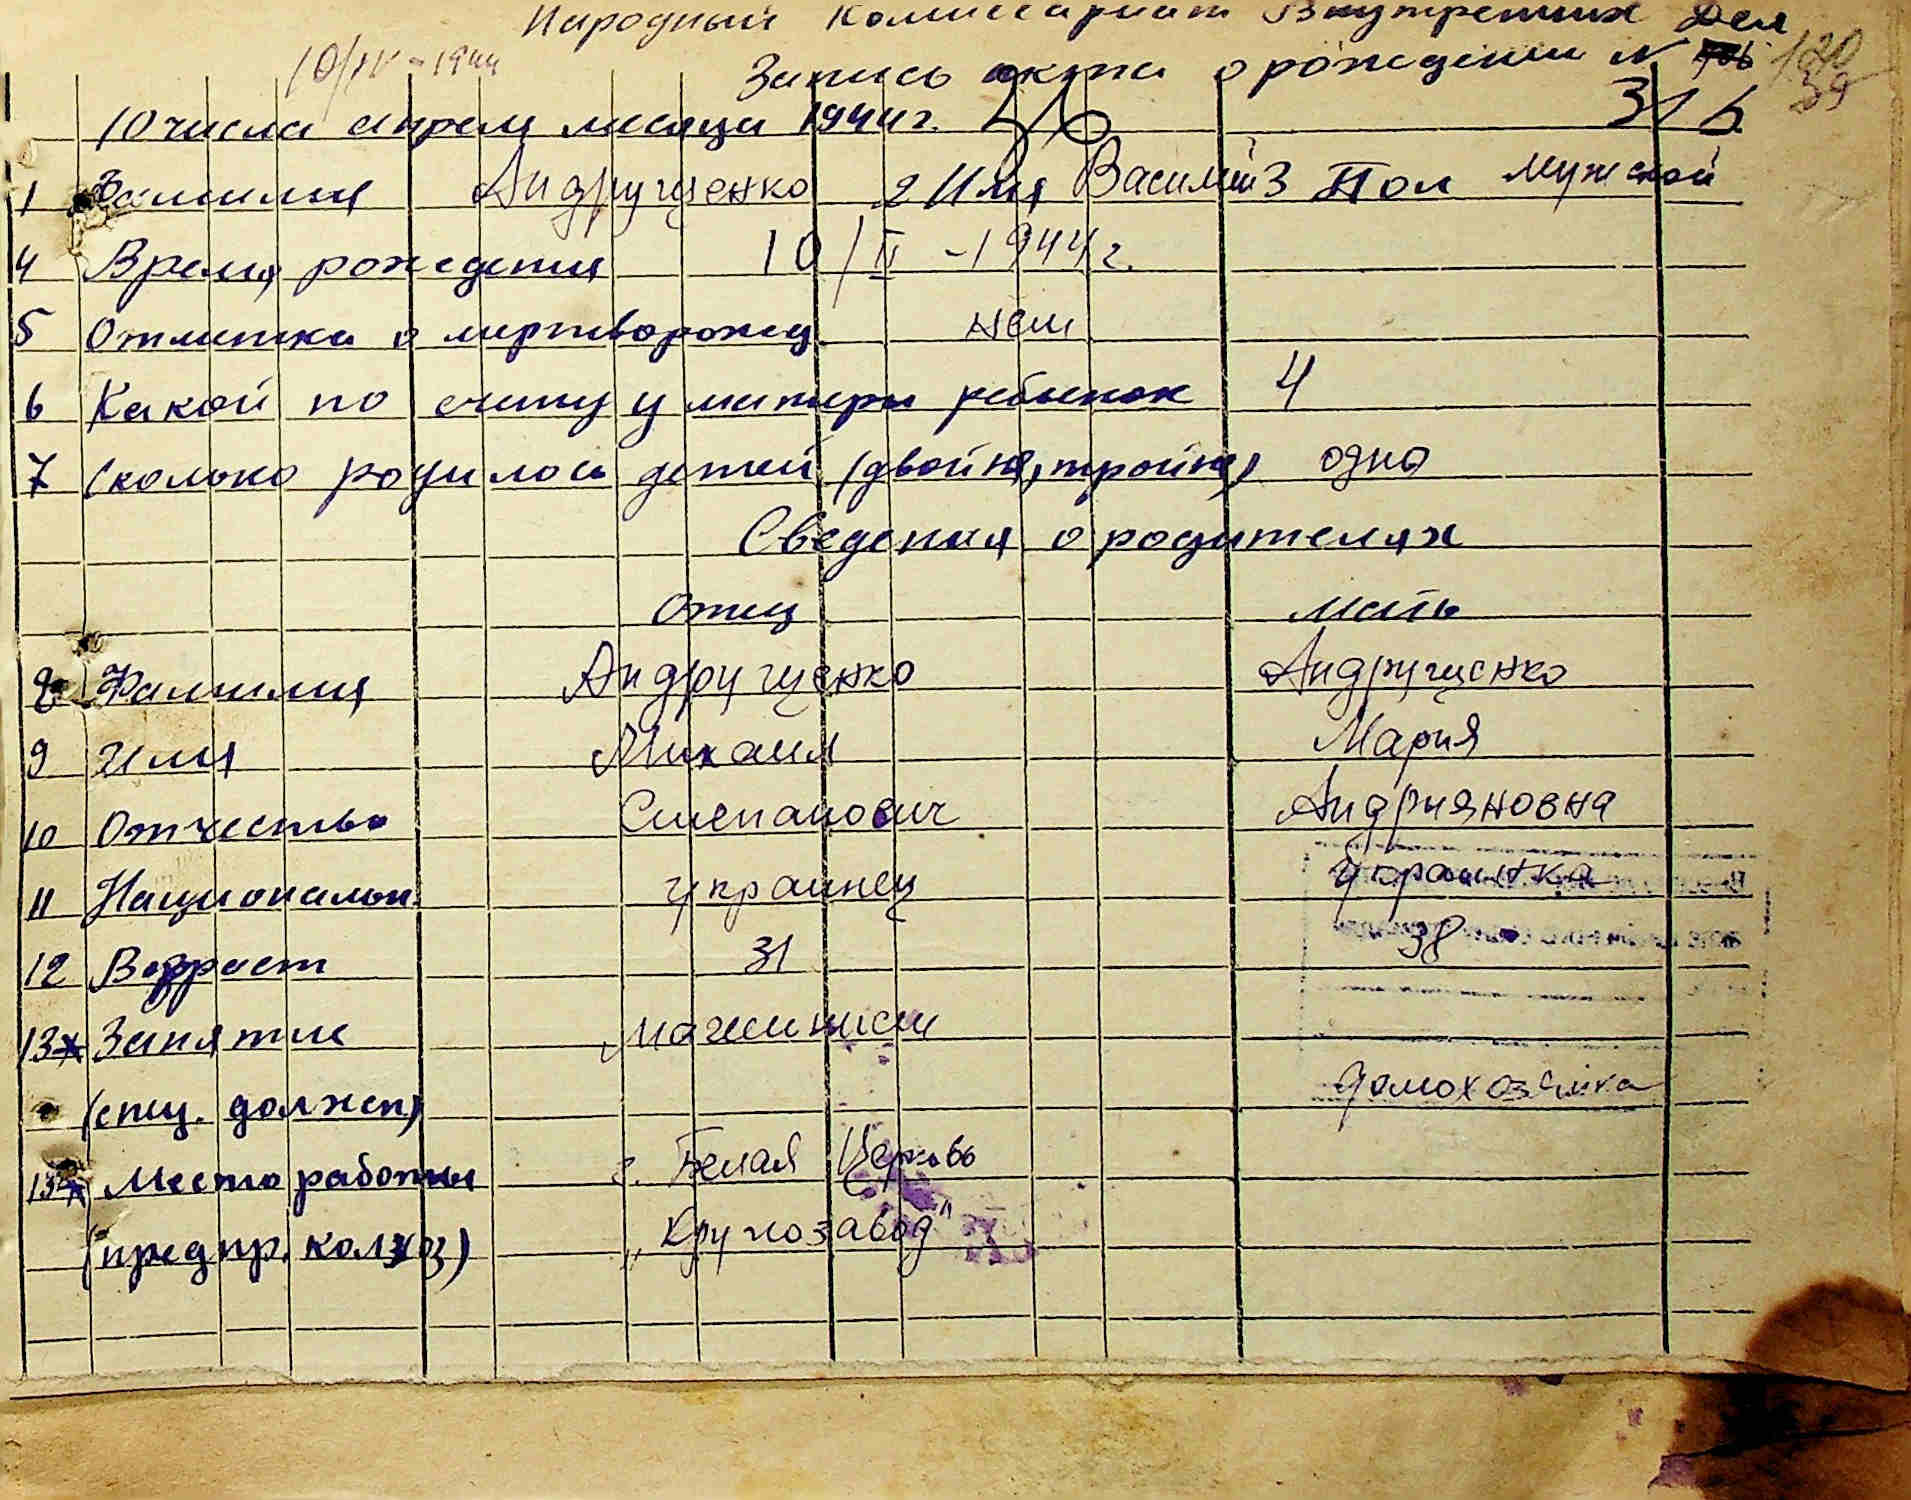 Народный Комиссариат Внутренних Дел
10/IV - 1944
Запись акта о рождении N
10 числа апреля месяца 1944 г. 316
1 Фамилия Андрущенко 2 Имя Василий 3 Пол мужской
4 Время рождения 10/II - 1944 г.
5 Отметка о мертворожд нет
6 Какой по счету у матери ребенок 4
7 Сколько родилось детей (двойня, тройня) одно
Сведения о родителях
Отец Мать
8 Фамилия Андрущенко Андрущенко
9 Имя Михаил Мария
10 Отчество Степанович Андрияновна
11 Национальн. украинец украинка
12 Возраст 31 38
13 Занятие машинист
(спец. должен) домохозяйка
13 Место работы г. Белая Церковь
(предпр. колхоз) „Крупозавод"